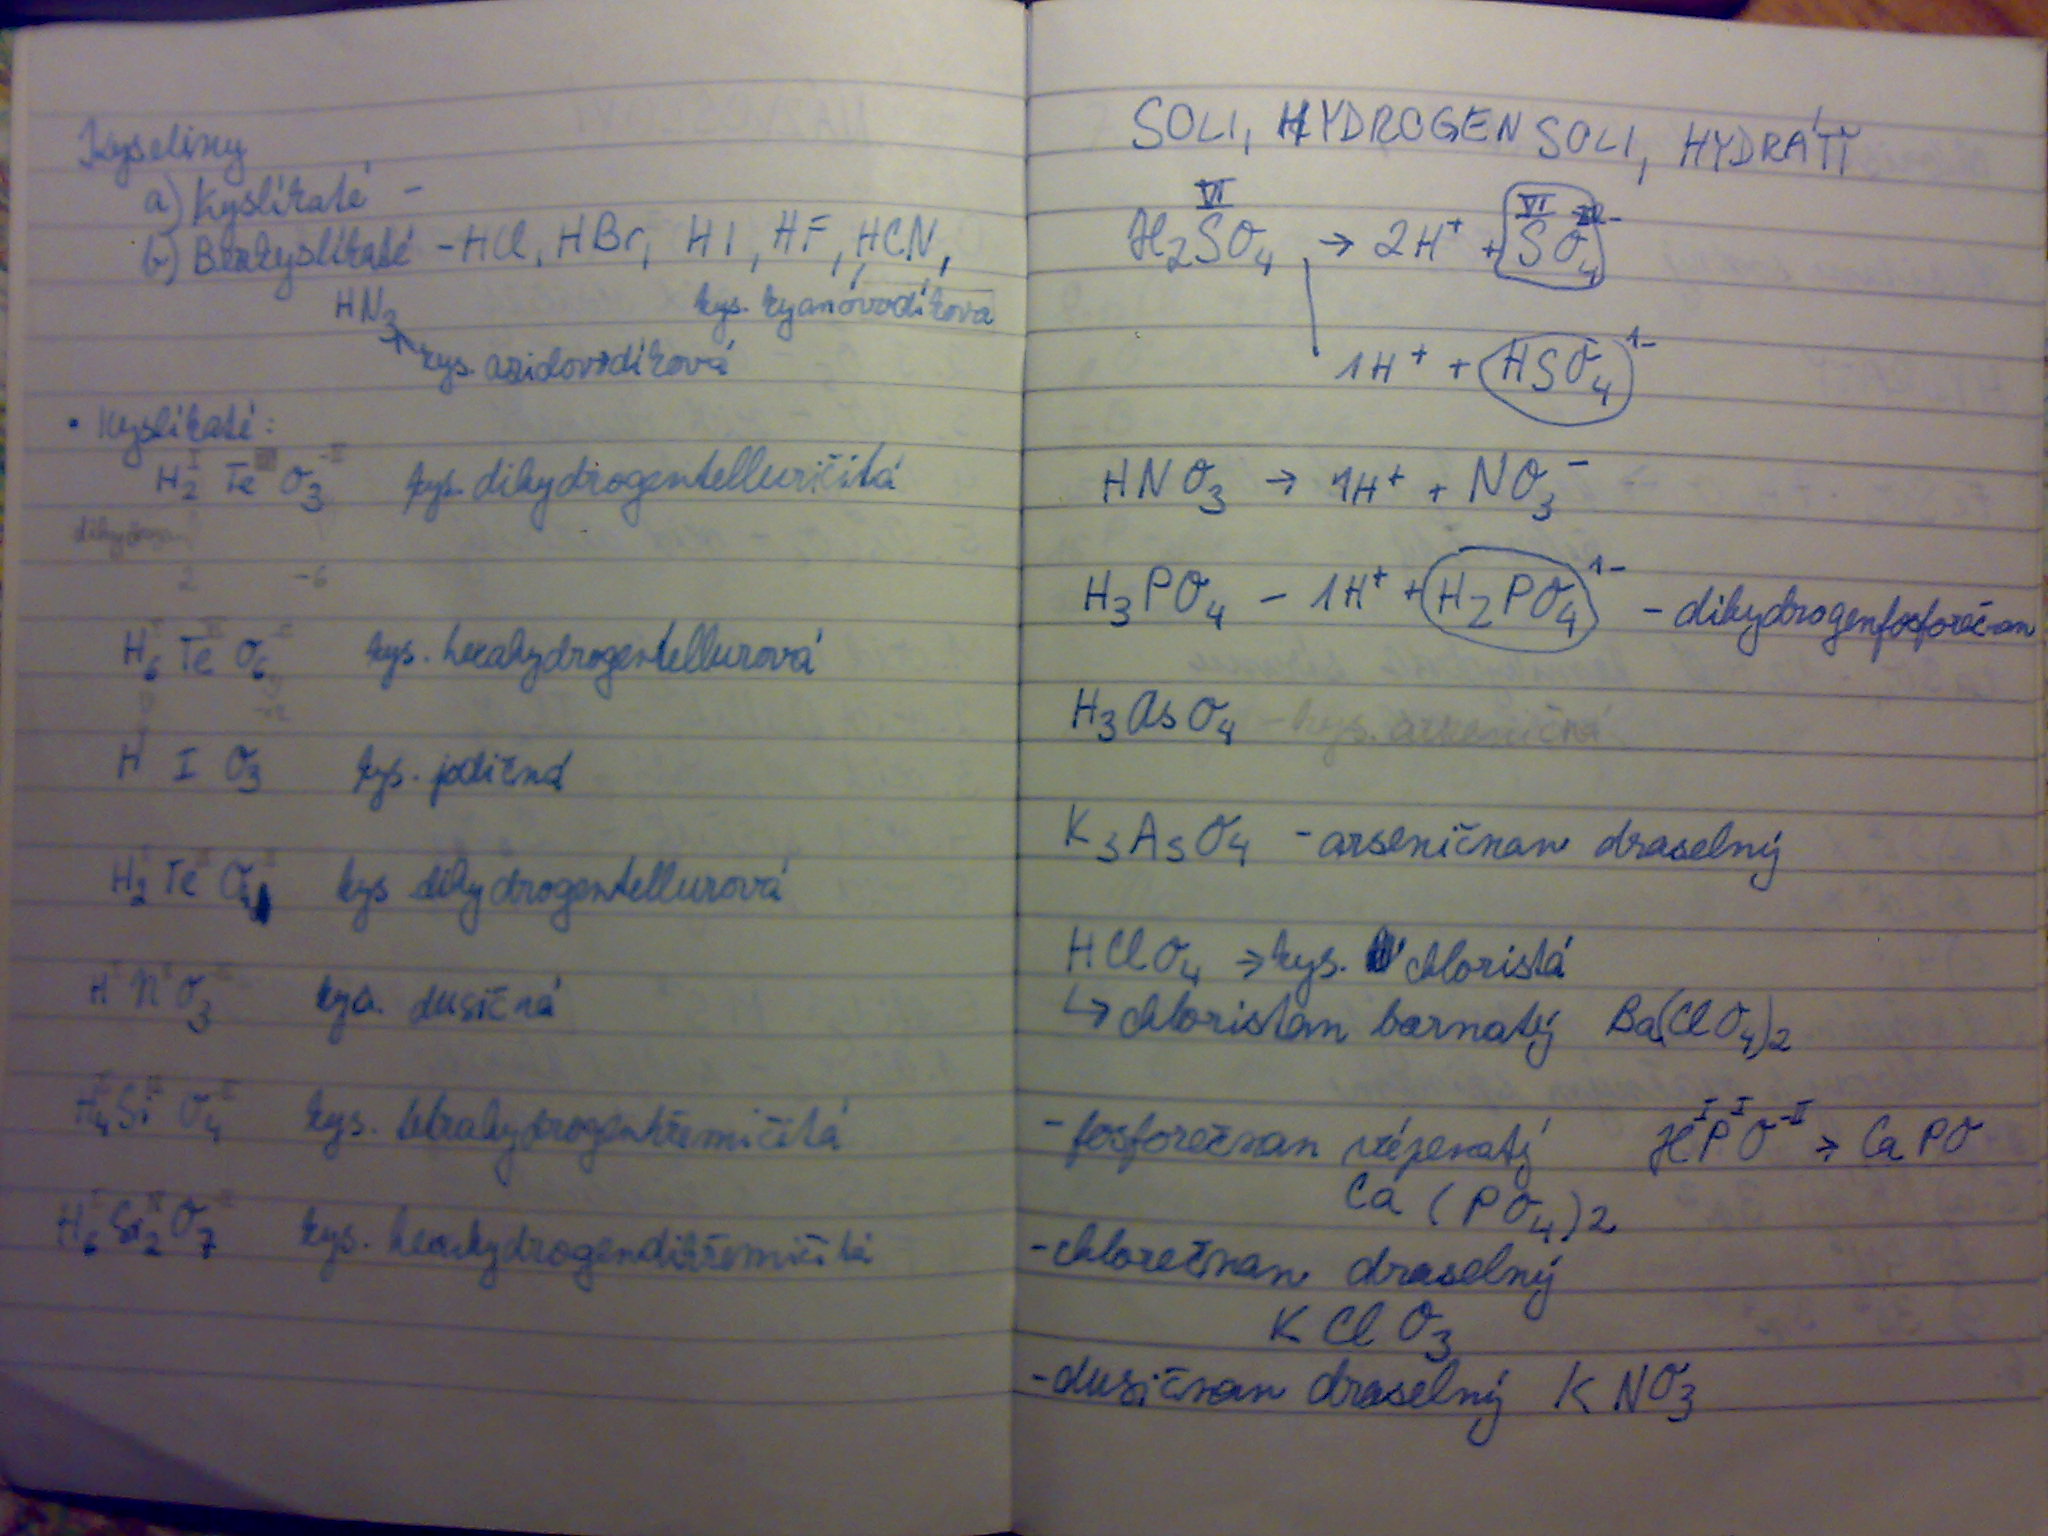 Kyseliny
a) Kyslíkaté -
b) Bezkyslíkaté - HCl, HBr, HI, HF, HCN,
HN3 kys. kyanovodíková
kys. azidovodíková
• Kyslíkaté:
H2 Te O3 kys. dihydrogentelluričitá
2 -6
H6 Te O6 kys. hexahydrogentellurová
H I O3 kys. jodičná
H2 Te O4 kys dihydrogentellurová
H N O3 kys. dusičná
H4 Si O4 kys. tetrahydrogenkřemičitá
H6 Si2 O7 kys. hexahydrogendikřemičitá
SOLI, HYDROGEN SOLI, HYDRÁTY
VI VI
H2SO4 → 2H+ + SO4 2-
1H+ + HSO4 1-
HNO3 → 1H+ + NO3-
H3PO4 - 1H+ + H2PO4 1- - dihydrogenfosforečnan
H3AsO4 - kys. arseničná
K3AsO4 - arseničnan draselný
HClO4 → kys. chloristá
↳ chloristan barnatý Ba(ClO4)2
- fosforečnan vápenatý H I P I O -II → CaPO
Ca(PO4)2
- chlorečnan draselný
K Cl O3
- dusičnan draselný K NO3